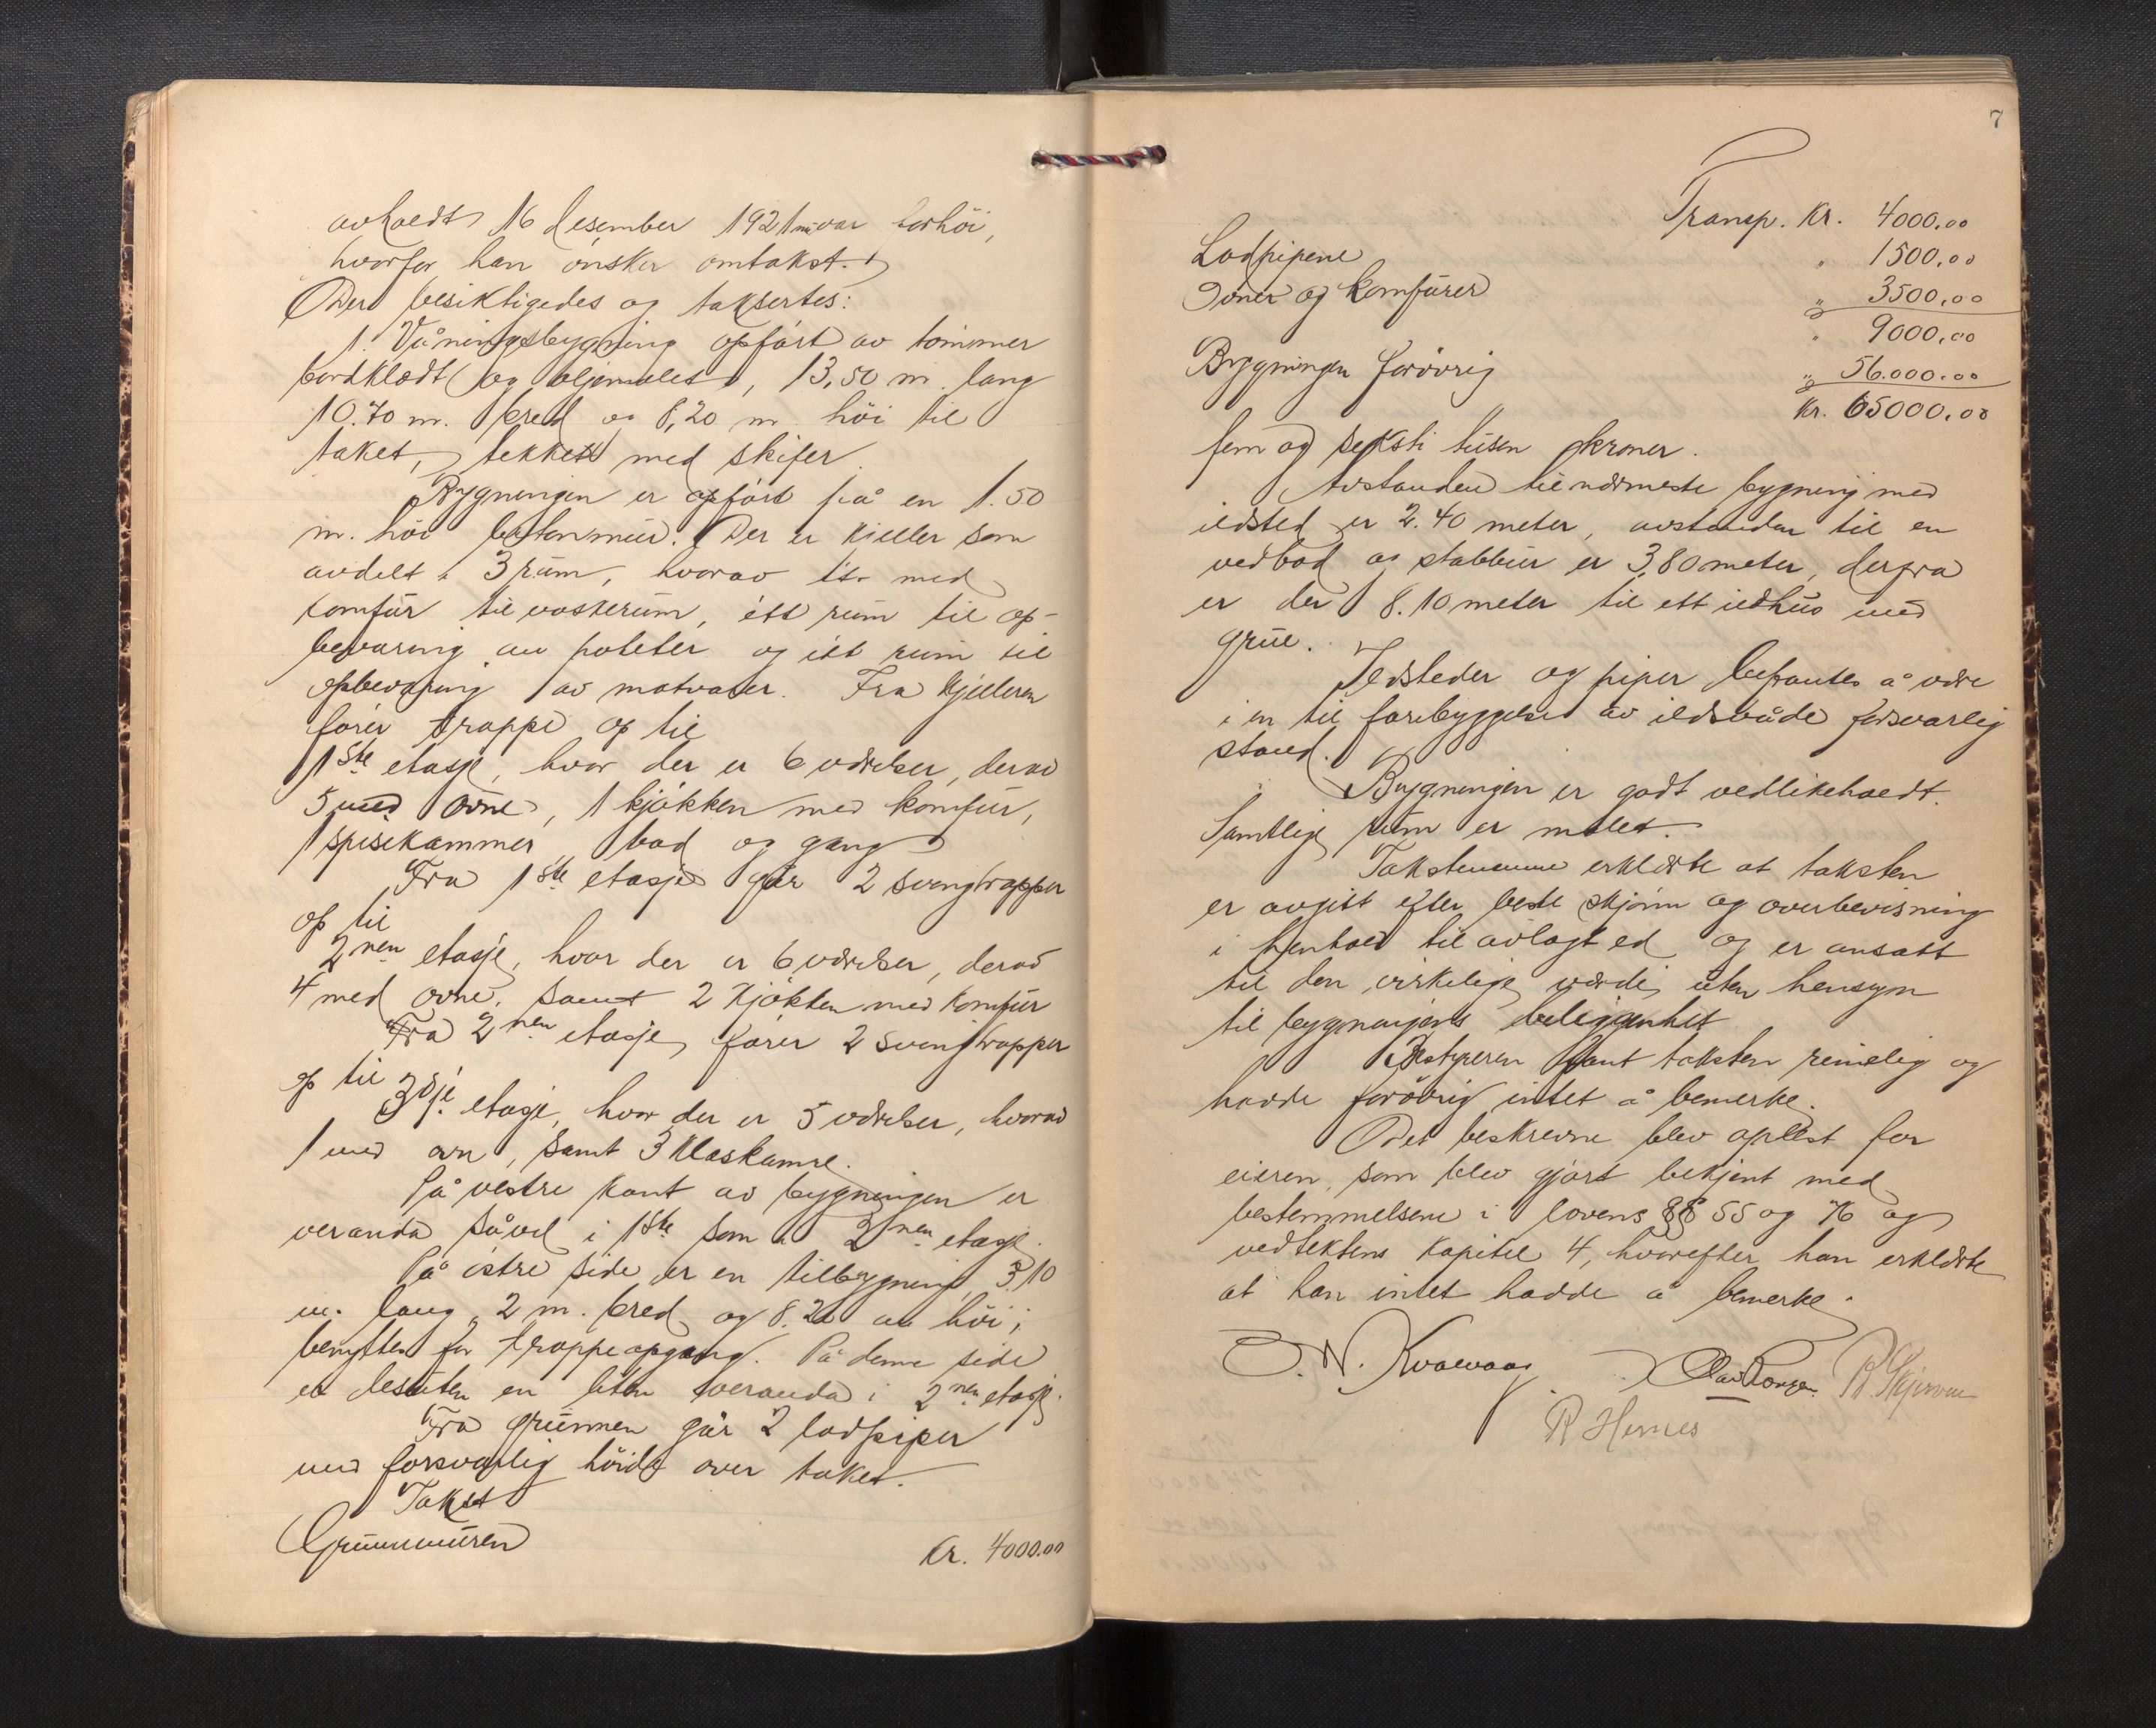 avholdt 16 desember 1921 var forhöi,
hvorfor han önsker omtakst.
Der besiktigedes og taksertes:
1. Våningsbygning opfört av tömmer
bordklædt og oljemalet, 13,50 m. lang
10.70 m. bred og 8,20 m höi til
taket, tekket med skifer.
Bygningen er opfört på en 1.50
m. höi betonmur. Der er kjeller som
avdelt i 3 rum, hvorav ett med
komfür til vaskerum, ett rum til op-
bevaring av poteter og ett rum til
opbevaring av matvarer. Fra kjelleren
förer trappe op til
1ste etasje, hvor der er 6 værelser, derav
5 med ovne, 1 kjökken med komfür,
1 spisekammer, bad og gang
Fra 1ste etasje går 2 svingtrapper
op til
2nen etasje, hvor der er 6 værelser, derav
4 med ovne, samt 2 kjökken med komfür
Fra 2nen etasje förer 2 svingtrapper
op til
3dje etasje, hvor der er 5 værelser, hvorav
1 med ovn, samt 3 klæskamre.
På vestre kant av bygningen er
veranda såvel i 1ste som i 2nen etasje.
På östre side er en tilbygning, 3.10
m. lang, 2 m. bred og 8.20 m höi;
benyttes for trappeopgang. På denne side
er desuten en liten veranda i 2nen etasje.
Fra grunnen går 2 lodpiper
med forsvarlig höide over taket.
Takst
Grunnmuren Kr. 4000.00
7
Transp. Kr. 4000,00
Lodpipene " 1500,00
Ovner og komfürer " 3500,00
" 9000,00
Bygningen forövrig " 56.000.00
Kr. 65000,00
fem og seksti tusen kroner.
Avstanden til nærmeste bygning med
ildsted er 2.40 meter, avstanden til en
vedbod og stabbur er 3,80 meter, derfra
er der 8.10 meter til ett ildhus med
grue.
Ildsteder og piper befantes å være
i en til forebyggelse av ildsvåde forsvarlig
stand.
Bygningen er godt vedlikeholdt.
Samtlige rum er malet.
Takstmennene erklærte at taksten
er avgitt efter beste skjönn og overbevisning
i henhold til avlagt ed og er ansatt
til den virkelige værdi uten hensyn
til bygningens beliggenhet
Bestyreren fant taksten rimelig og
hadde forövrig intet å bemerke.
Det beskrevne blev oplest for
eieren, som blev gjort bekjent med
bestemmelsene i lovens §§ 55 og 76 og
vedtektens kapitel 4, hvorefter han erklærte
at han intet hadde å bemerke.
O. N. Kvalvaag Olav R. Skjervø
R Hernes